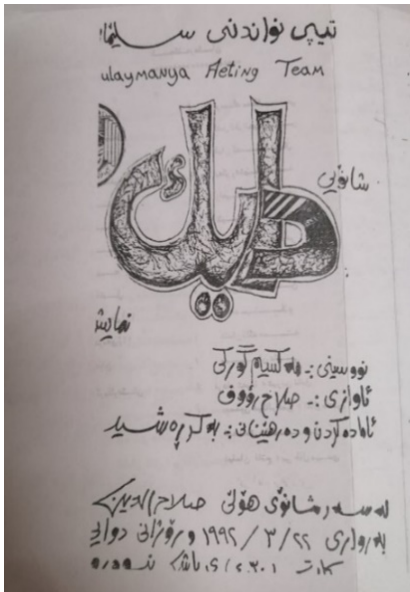 تیپی نواندنی سلێما
ulaymanya Acting Team
شانۆیی
نمایش
نووسینی :- مەکسیم گۆرکی
ئاوازی :- صلاح رؤوف
ئامادەکردن و دەرهێنانی :- بەکر رەشید
لەسەر شانۆی هۆڵی صلاح الدین
بەرواری ٢٢ / ٣ / ١٩٩٢ و رۆژانی دوایی